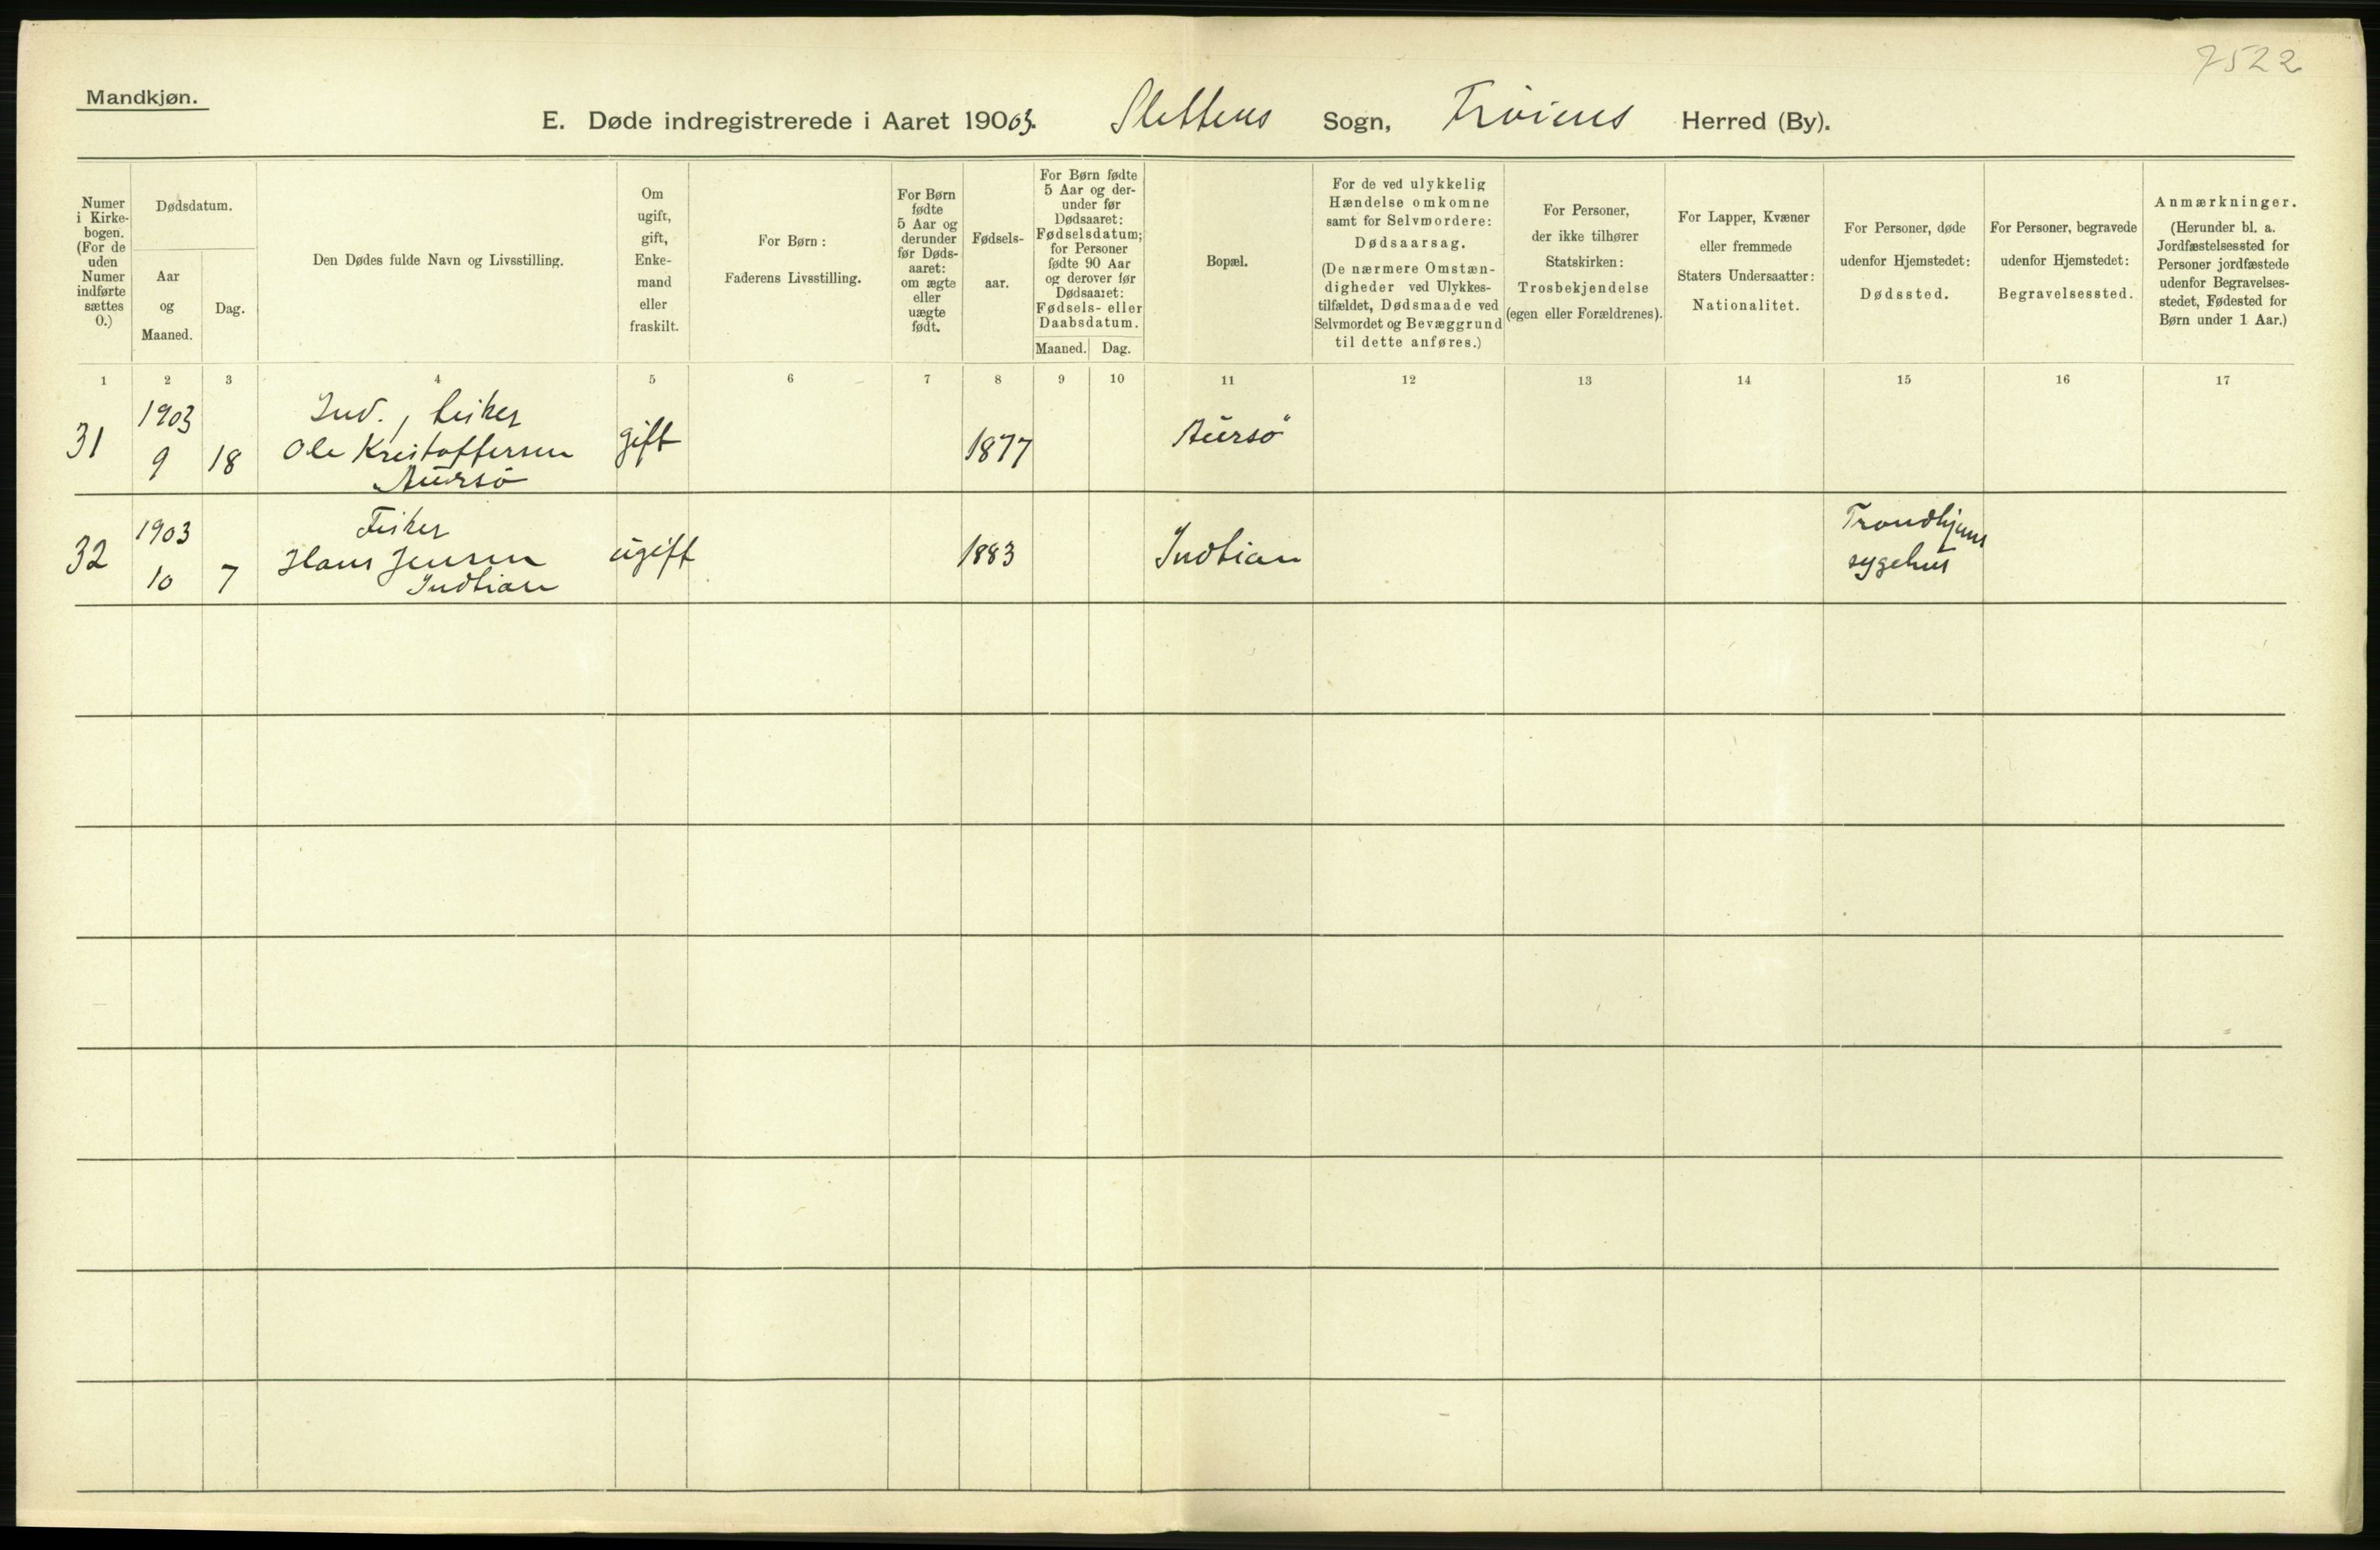 7522
Mandkjøn.
E. Døde indregistrerede i Aaret 19003. Slettens Sogn, Frøiens Herred (By).
Numer
i Kirke-
bogen.
(For de
uden
Numer
indførte
sættes
0.)
Dødsdatum.
Aar
og
Maaned.
Dag.
Den Dødes fulde Navn og Livsstilling.
Om
ugift,
gift,
Enke-
mand
eller
fraskilt.
For Børn:
Faderens Livsstilling.
For Børn
fødte
5 Aar og
derunder
før Døds-
aaret:
om ægte
eller
uægte
født.
Fødsels-
aar.
For Børn fødte
5 Aar og der-
under før
Dødsaaret:
Fødselsdatum;
for Personer
fødte 90 Aar
og derover før
Dødsaaret:
Fødsels- eller
Daabsdatum.
Maaned. Dag.
Bopæl.
For de ved ulykkelig
Hændelse omkomne
samt for Selvmordere:
Dødsaarsag.
(De nærmere Omstæn-
digheder ved Ulykkes-
tilfældet, Dødsmaade ved
Selvmordet og Bevæggrund
til dette anføres.)
For Personer,
der ikke tilhører
Statskirken:
Trosbekjendelse
(egen eller Forældrenes).
For Lapper, Kvæner
eller fremmede
Staters Undersaatter:
Nationalitet.
For Personer, døde
udenfor Hjemstedet:
Dødssted.
For Personer, begravede
udenfor Hjemstedet:
Begravelsessted.
Anmærkninger.
(Herunder bl. a.
Jordfæstelsessted for
Personer jordfæstede
udenfor Begravelses-
stedet, Fødested for
Børn under 1 Aar.)
1 2 3 4 5 6 7 8 9 10 11 12 13 14 15 16 17
31
1903
9 18
Ind., fisker
Ole Kristoffersen
Aursø
gift
1877
Aursö
32
1903
10 7
Fisker
Hans Jensen
Indtian
ugift
1883
Indtian
Trondhjems
sygehus